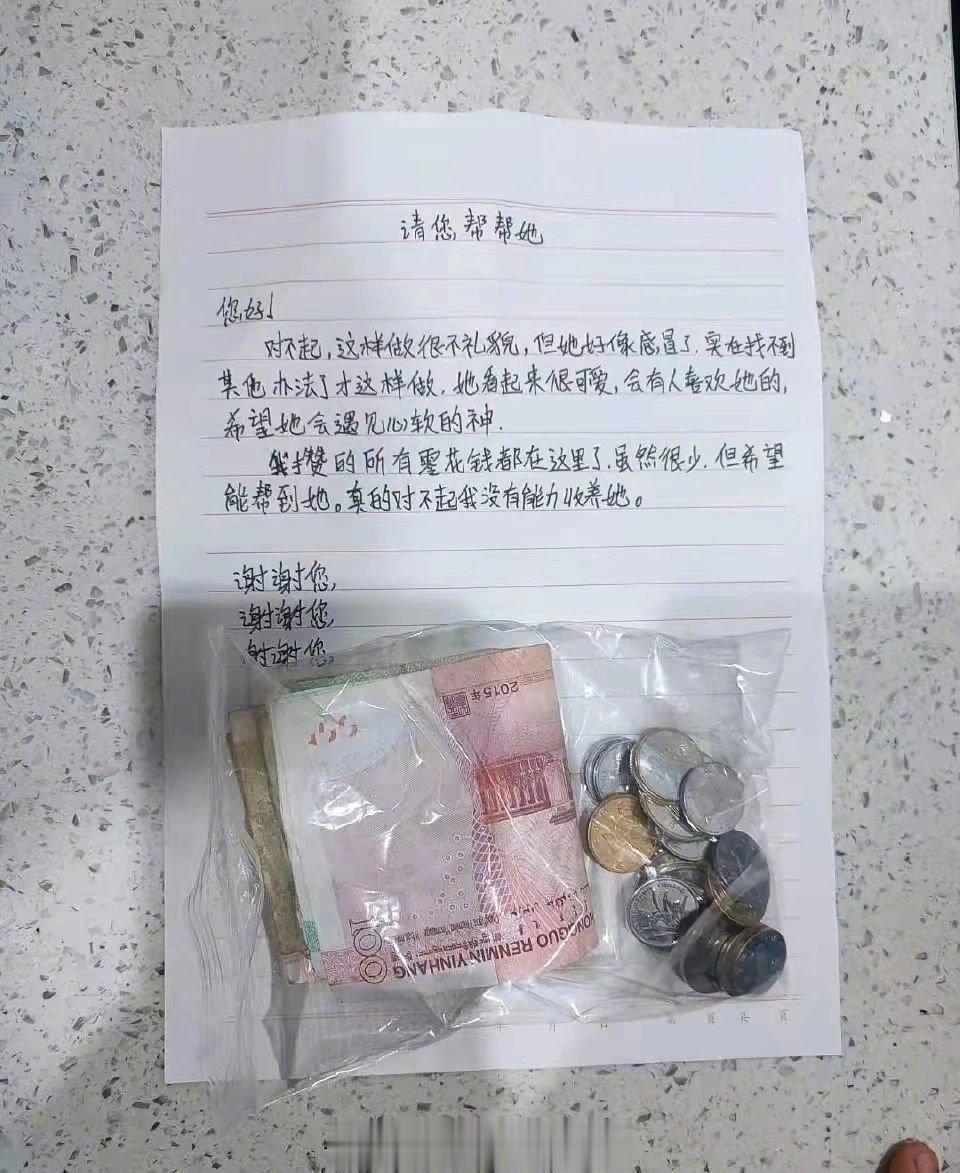 请您帮帮她
您好!
对不起,这样做很不礼貌,但她好像感冒了.实在找不到
其他办法了才这样做.她看起来很可爱,会有人喜欢她的,
希望她会遇见心软的神.
我攒的所有零花钱都在这里了.虽然很少.但希望
能帮到她。真的对不起我没有能力收养她。
谢谢您,
谢谢您,
谢谢您。
2015年
100
ZHONGGUO RENMIN YINHANG
月
第 页 共 页